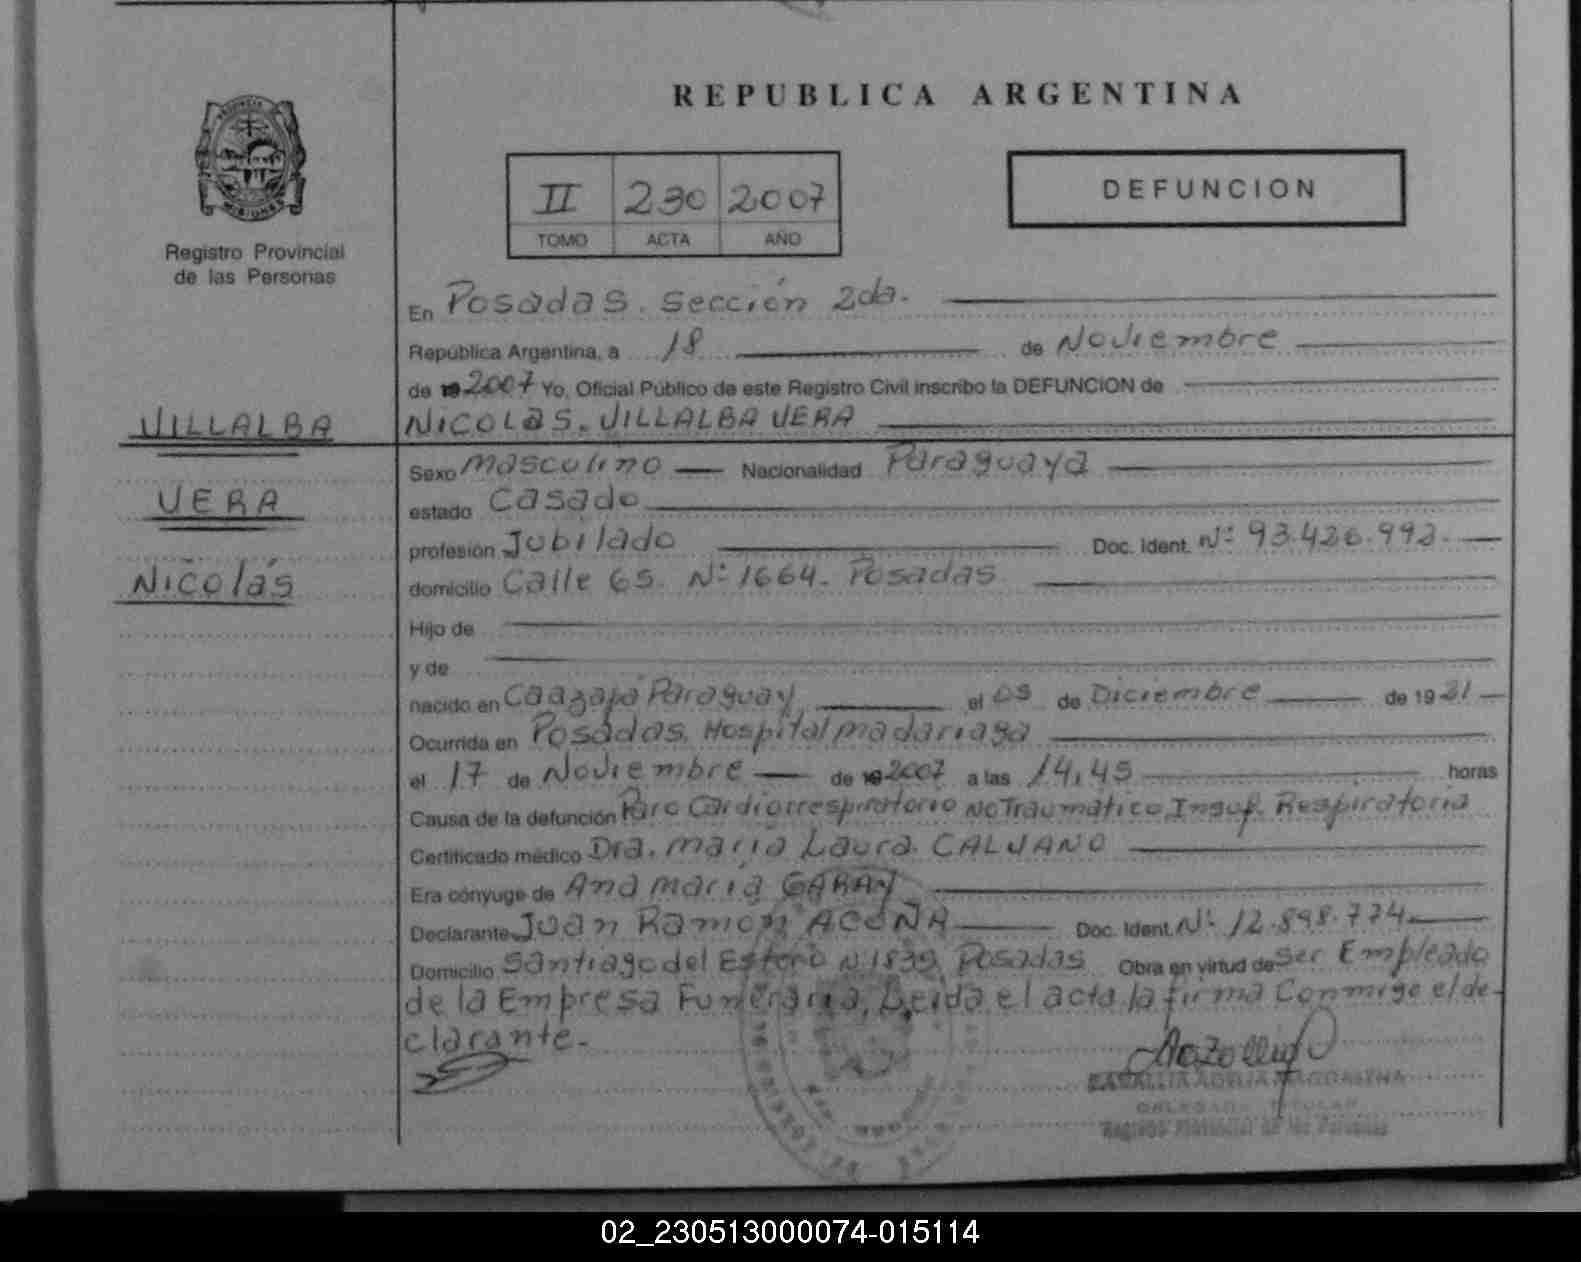 REPUBLICA ARGENTINA
II 230 2007
TOMO ACTA AÑO
DEFUNCION
MISIONES
Registro Provincial
de las Personas
En Posadas. Sección 2da.
República Argentina, a 18 de Noviembre
de 19 2007 Yo, Oficial Público de este Registro Civil inscribo la DEFUNCION de
NICOLAS. VILLALBA VERA
VILLALBA
VERA
Nicolás
Sexo Masculino Nacionalidad Paraguaya
estado Casado
profesión Jubilado Doc. Ident. Nº 93.426.992.
domicilio Calle 65. Nº 1664. Posadas
Hijo de
y de
nacido en Caazapá Paraguay el 05 de Diciembre de 19
Ocurrida en Posadas. Hospital Madariaga
el 17 de Noviembre de 19 2007 a las 14,45 horas
Causa de la defunción Paro Cardiorrespiratorio No Traumático, Insuf. Respiratoria
Certificado médico Dra. María Laura. CALVANO
Era cónyuge de Ana María GARAY
Declarante Juan Ramón ACUÑA Doc. Ident. Nº 12.898.774.
Domicilio Santiago del Estero N 1839 Posadas Obra en virtud de Ser Empleado
de la Empresa Funeraria, Leida el acta la firma Conmigo el de-
clarante.
Registro Provincial de las Personas
02_230513000074-015114